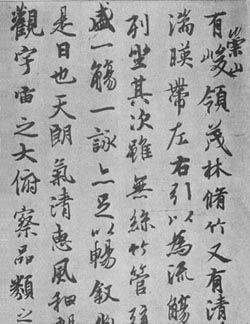 崇山
有峻領茂林脩竹又有清
湍暎帶左右引以為流觴
列坐其次雖無絲竹管
盛一觴一詠亦足以暢叙
是日也天朗氣清惠風和
觀宇宙之大俯察品類之